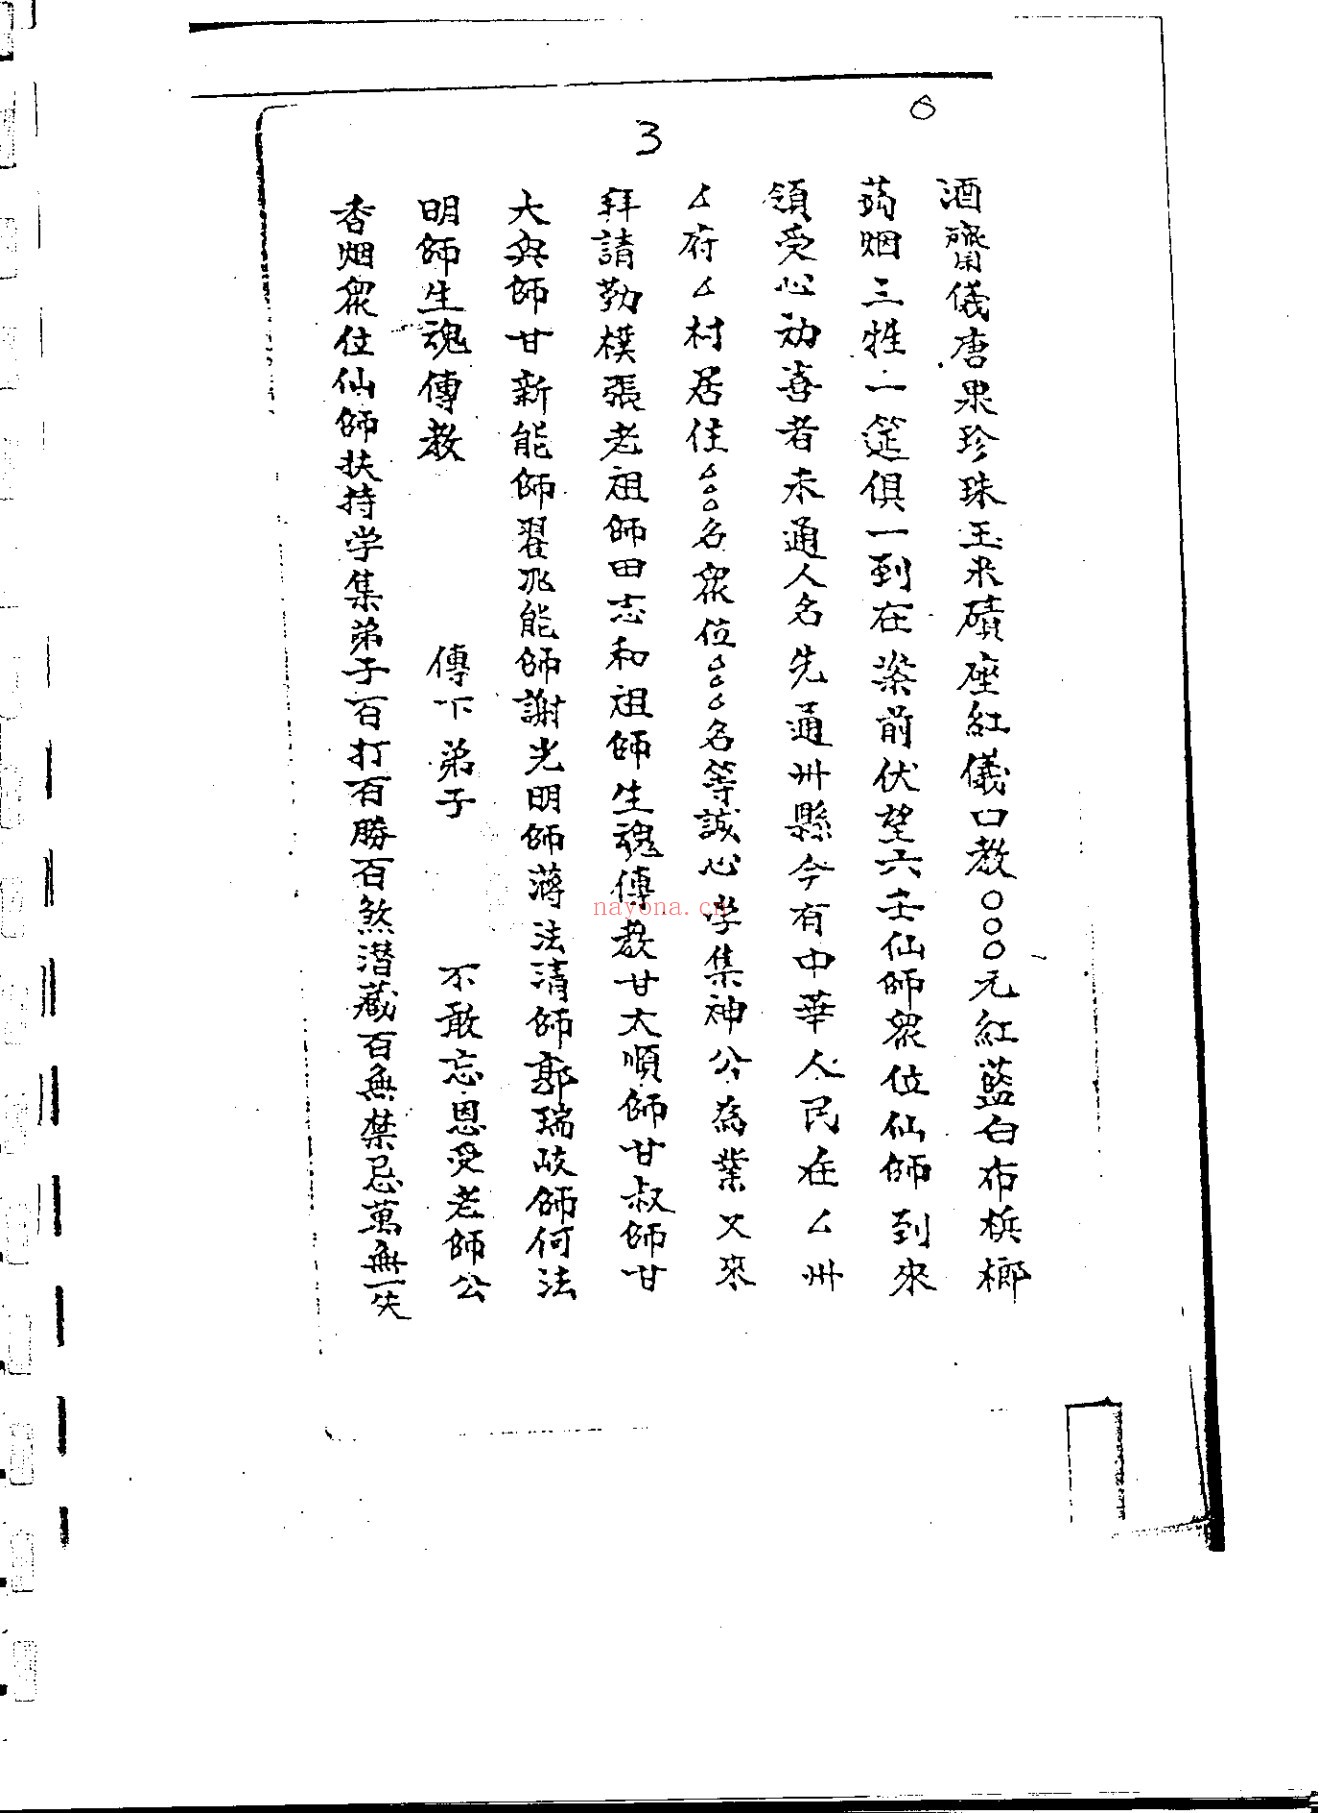 6
3
酒齋儀唐果珍珠玉米磧座紅儀口教〇〇〇元紅藍白布梹榔
药烟三牲一筵俱一到在案前伏望六壬仙師衆位仙師到來
領受心劝喜者未通人名先通州縣今有中華人民在厶州
厶府厶村居住厶〇〇名衆位厶〇〇名等誠心学集神公為業又來
拜請勤樸張老祖師田志和祖師生魂傳教甘大順師甘叔師甘
大興師甘新能師翟兆能師謝光明師蔣法清師郭瑞岐師何法
明師生魂傳教 傳下弟子 不敢忘恩受老師公
香烟衆位仙師扶持学集弟子百打百勝百煞潜藏百無禁忌萬無一失
nayona.cn